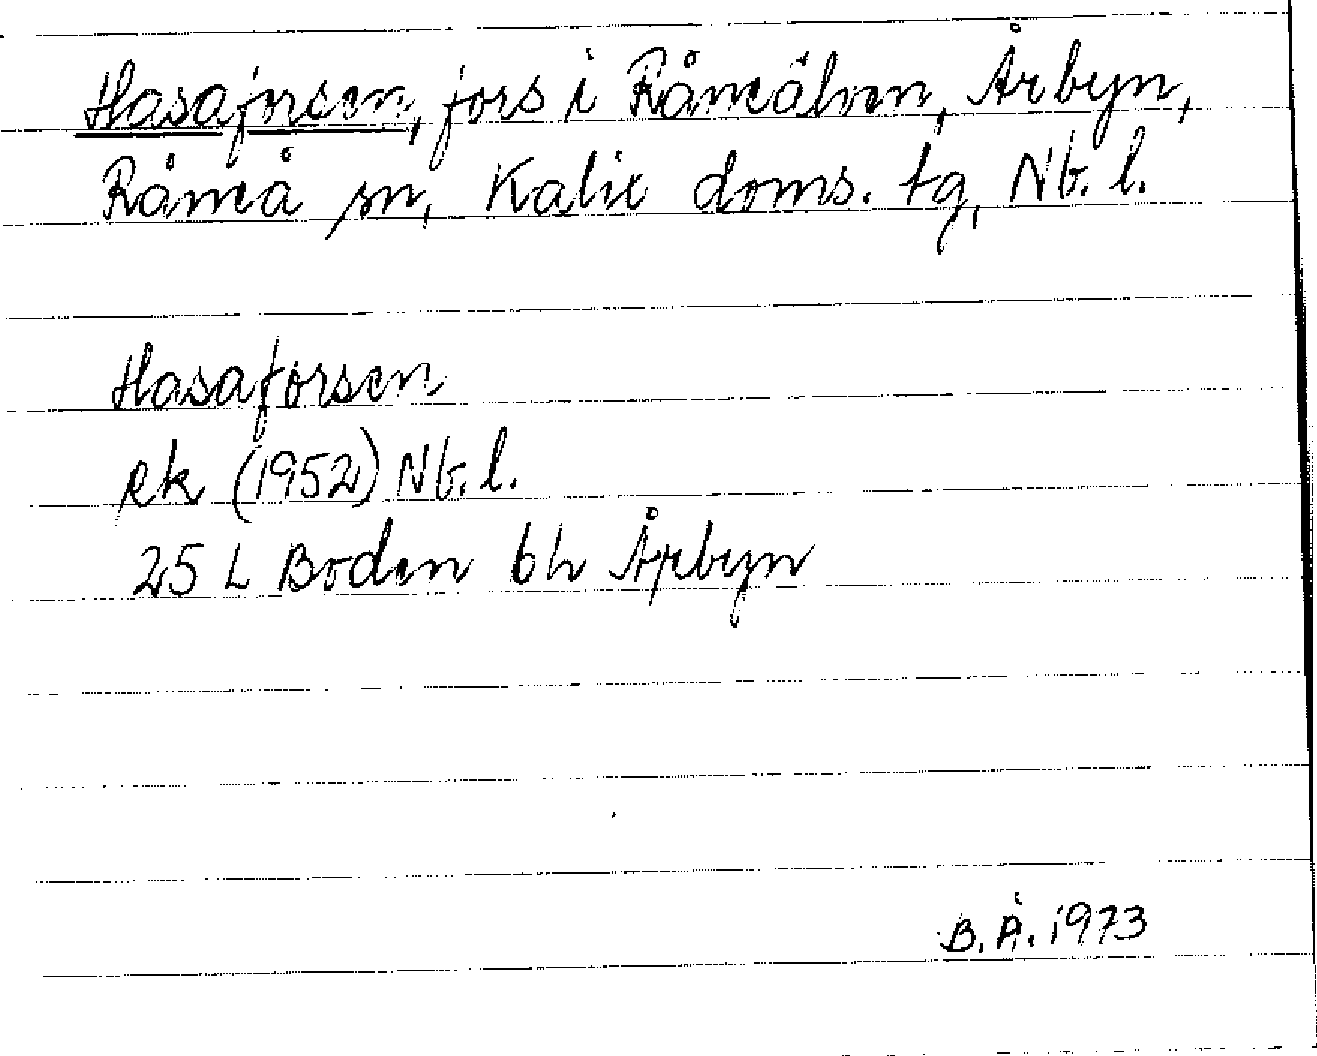 Hasaforsen, fors i Råneälven, Årbyn,
Råneå sn, Kalix doms. tg, Nb. l.
Hasaforsen
rk (1952) Nb. l.
25 L Boden bl. Årbyn
B. Å. 1973